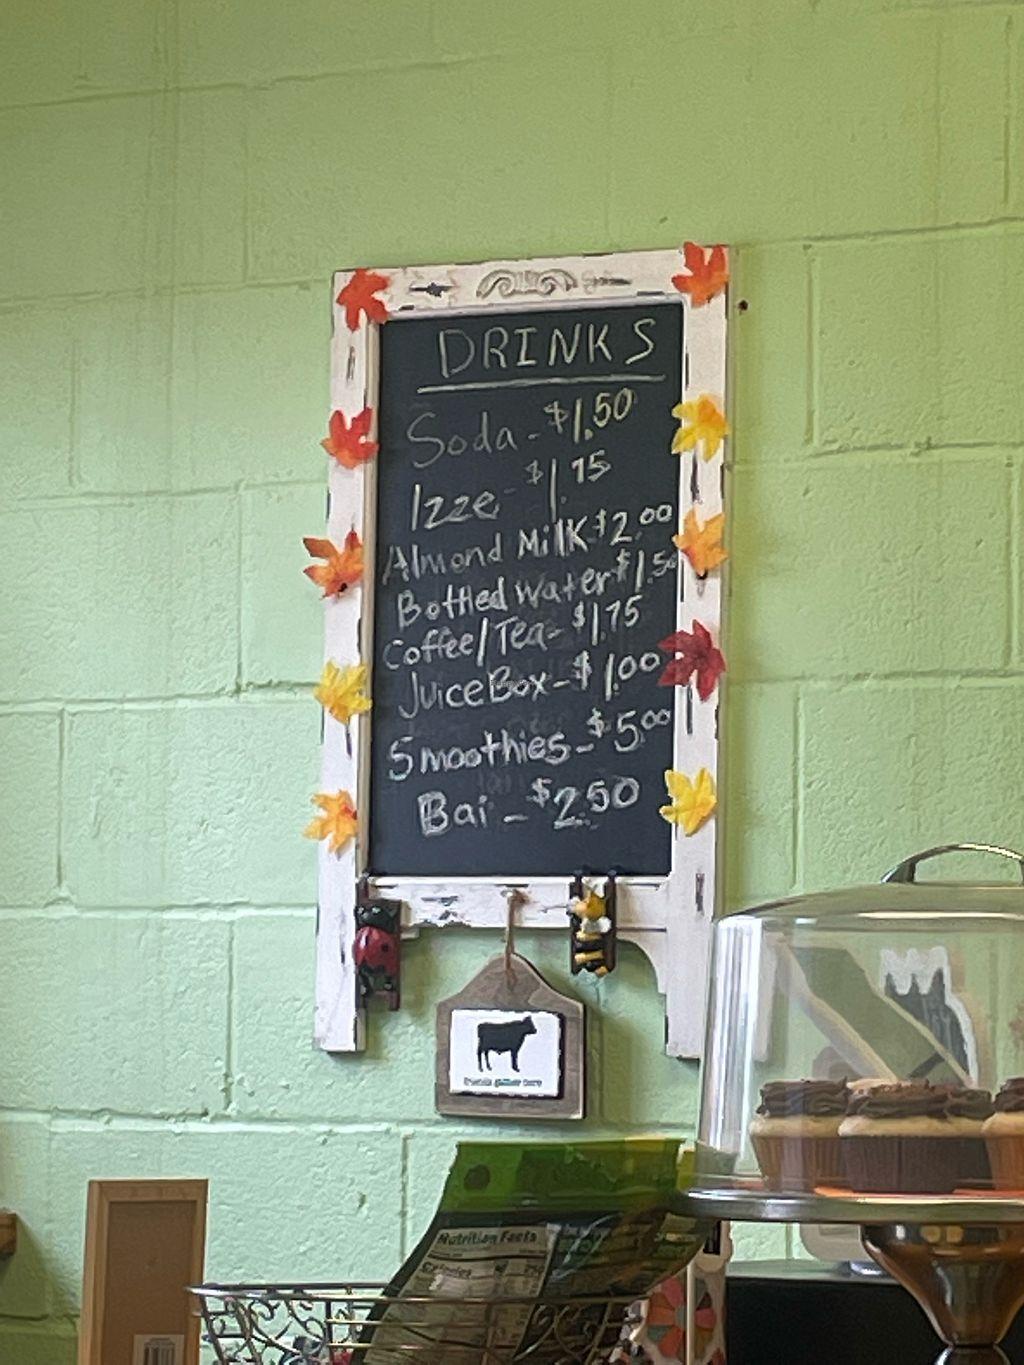 DRINKS
Soda - $1.50
Izze - $1.75
Almond Milk $2.00
Bottled Water $1.50
Coffee/Tea - $1.75
Juice Box - $1.00
Smoothies - $5.00
Bai - $2.50
Nutrition Facts
Calories